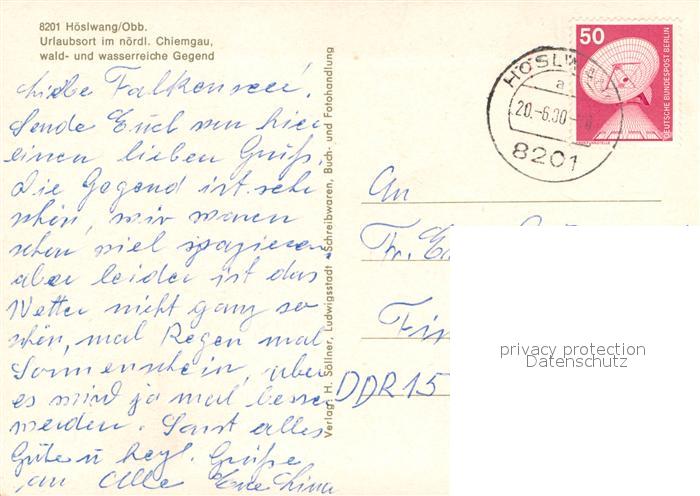 8201 Höslwang/Obb.
Urlaubsort im nördl. Chiemgau,
wald- und wasserreiche Gegend
Liebe Falkenseer!
Sende Euch von hier
einen lieben Gruß.
Die Gegend ist sehr
schön, wir waren
schon viel spazieren,
aber leider ist das
Wetter nicht ganz so
schön, mal Regen mal
Sonnenschein, aber
es wird ja mal besser
werden. Sonst alles
Gute u hzgl. Grüße
an Alle Eure
Verlag: H. Söllner, Ludwigsstadt Schreibwaren, Buch- und Fotohandlung
50
DEUTSCHE BUNDESPOST BERLIN
HÖSLWANG
a
20.-6.80
8201
An
Fr.
DDR 15
privacy protection
Datenschutz